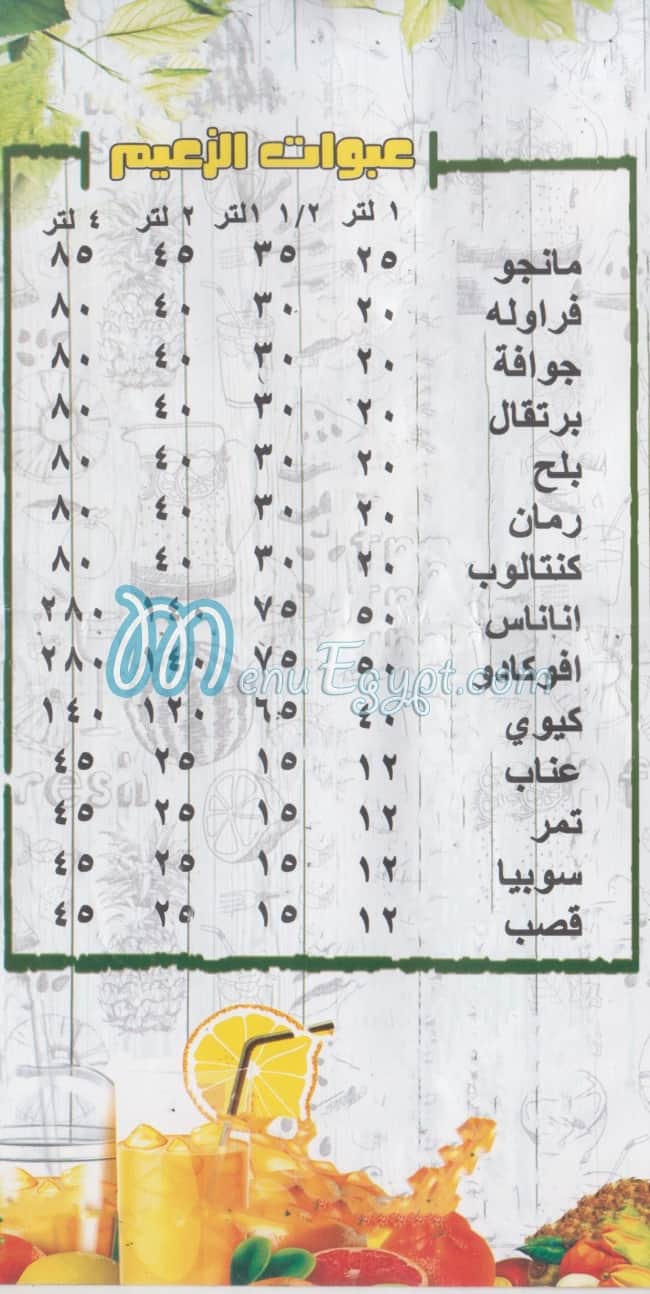 عبوات الزعيم
١ لتر ١/٢ ١لتر ٢ لتر ٤ لتر
مانجو ٢٥ ٣٥ ٤٥ ٨٥
فراوله ٢٠ ٣٠ ٤٠ ٨٠
جوافة ٢٠ ٣٠ ٤٠ ٨٠
برتقال ٢٠ ٣٠ ٤٠ ٨٠
بلح ٢٠ ٣٠ ٤٠ ٨٠
رمان ٢٠ ٣٠ ٤٠ ٨٠
كنتالوب ٢٠ ٣٠ ٤٠ ٨٠
اناناس ٥٠ ٧٥ ١٤٠ ٢٨٠
افوكادو ٥٠ ٧٥ ١٤٠ ٢٨٠
MenuEgypt.com
كيوي ٤٠ ٦٥ ١٢٠ ١٤٠
عناب ١٢ ١٥ ٢٥ ٤٥
تمر ١٢ ١٥ ٢٥ ٤٥
سوبيا ١٢ ١٥ ٢٥ ٤٥
قصب ١٢ ١٥ ٢٥ ٤٥